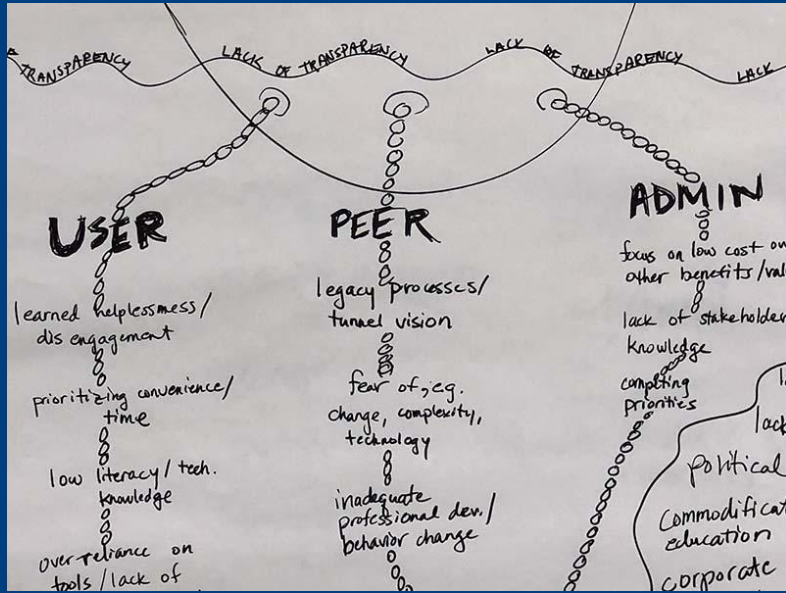 TRANSPARENCY
LACK OF TRANSPARENCY
LACK OF TRANSPARENCY
LACK
USER
learned helplessmess/
disengagement
prioritizing convenience/
time
low literacy/tech.
knowledge
over-reliance on
tools/lack of
PEER
legacy processes/
tunnel vision
fear of, eg.
change, complexity,
technology
inadequate
professional dev./
behavior change
ADMIN
focus on low cost
other benefits/
lack of stakeholder
knowledge
competing
priorities
lack
political
education
corporate